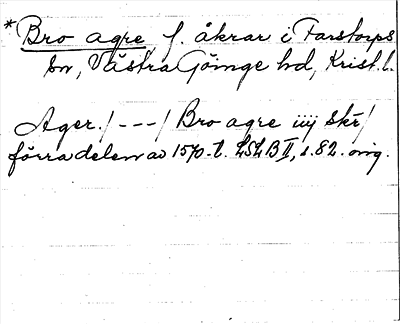 *Bro agre f. åkrar i Farstorps
sn, Västra Göinge hd, Krist. l.
Ager. / - - - / Bro agre iiij Skr /
förra delen av 1570-t. LSLB II, s. 82. orig.